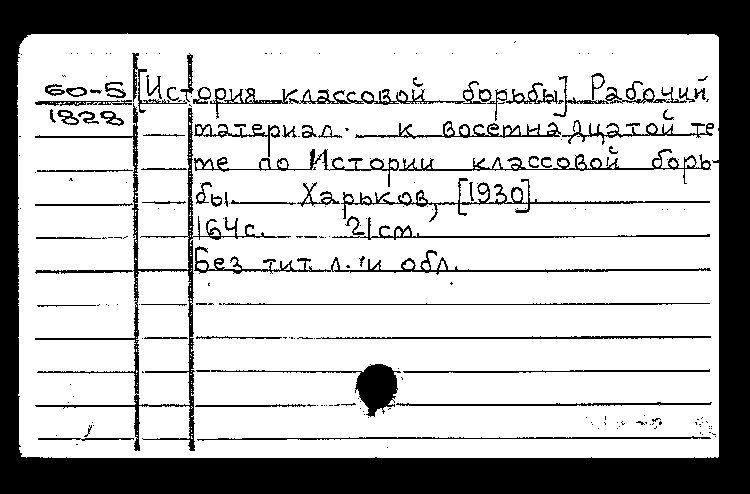 60-5 [История классовой борьбы]. Рабочий
1828 материал к восемнадцатой те-
ме по Истории классовой борь-
бы. Харьков, [1930].
164с. 21см.
Без тит. л. и обл.